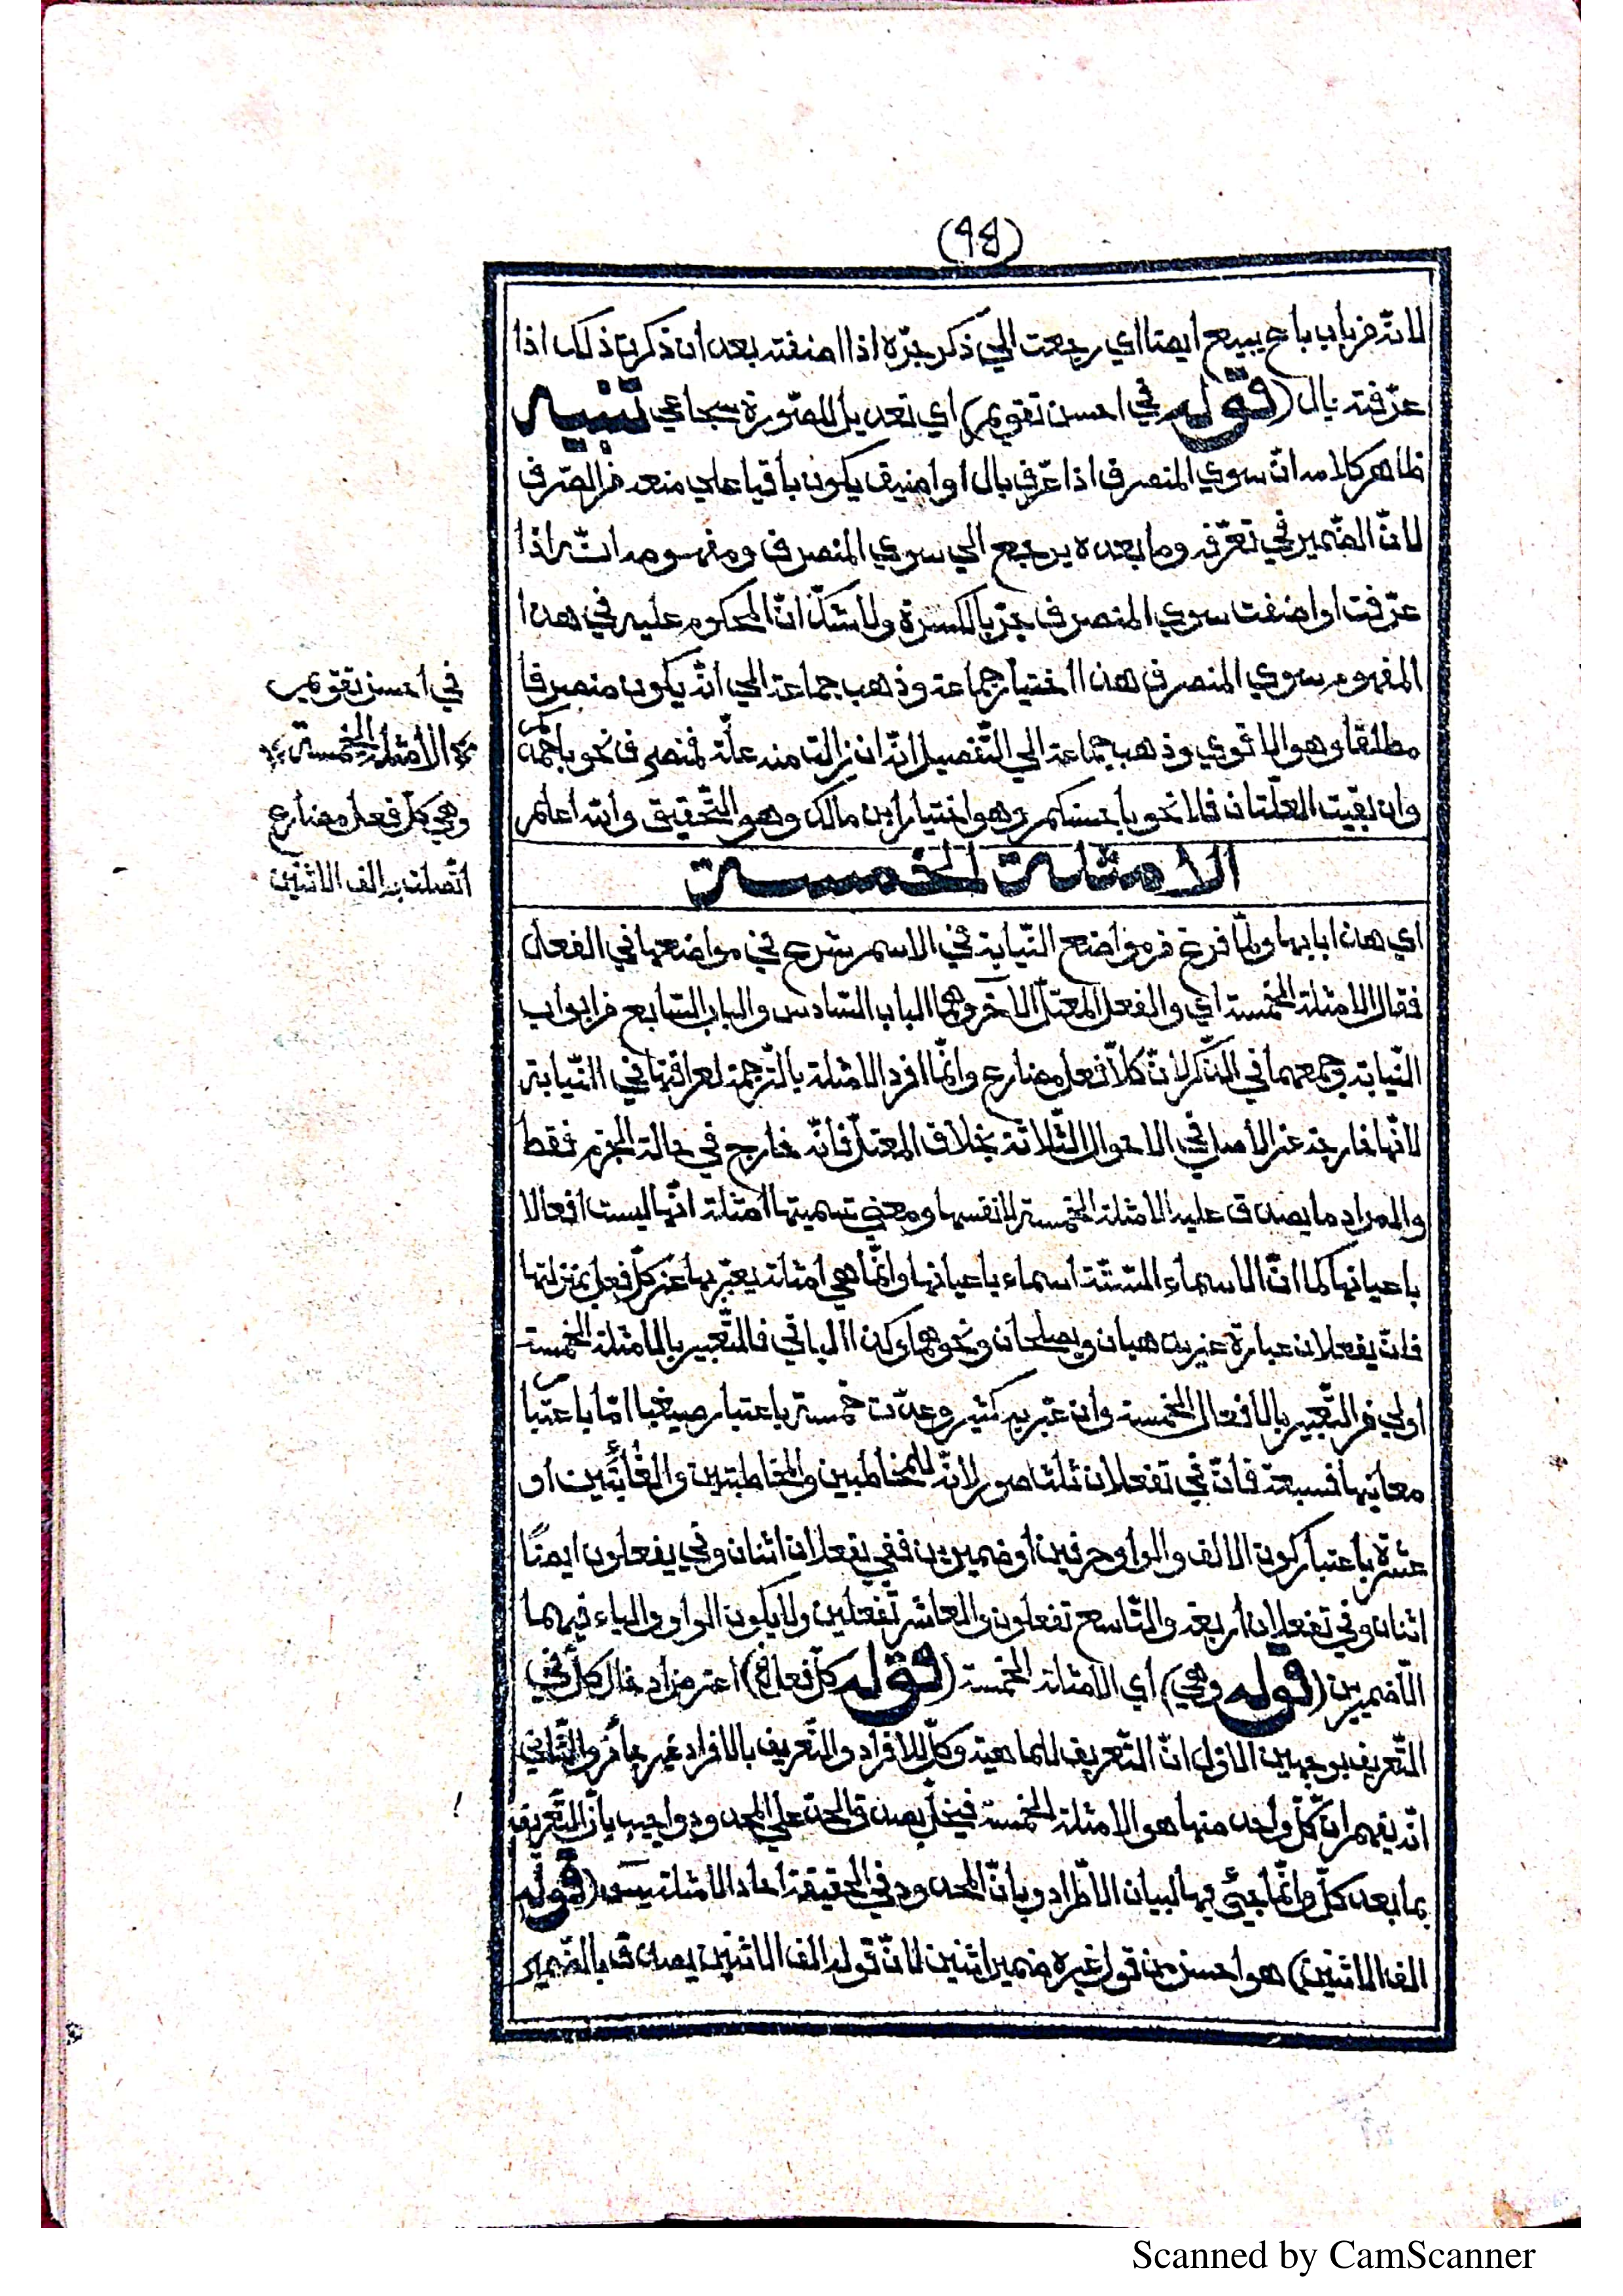 (٩٤)
لانّه من باب باع يبيع ايضا اي رجعت الى ذكر جرّه اذا اضفته بعد أن ذكرت ذلك اذا
عرّفته بال (قوله في احسن تقويم) اي تعديل للصّورة سجاعي تنبيه
ظاهر كلامه انّ سوي المنصرف اذا عرّف بال او اضيف يكون باقيا علي منعه من الصّرف
لانّ الضّمير في تعرّفه وما بعده يرجع الي سوي المنصرف ومفهومه انّه اذا
عرّفت او اضفت سوي المنصرف يجرّ بالكسرة ولا شكّ انّ المحكوم عليه في هذا
المفهوم سوي المنصرف هذا اختيار جماعة وذهب جماعة الي انّه يكون منصرفا
مطلقا وهو الاقوي وذهب جماعة الي التّفصيل انّه ان زالت منه علّة فمنصرف نحو باحمدكم
وان بقيت العلّتان فلا نحو باحسنكم وهو اختيار ابن مالك وهو التّحقيق والله اعلم
الامثلة الخمسة
اي هذا بابها ولمّا فرغ من مواضع النّيابة في الاسم شرع في مواضعها في الفعل
فقال الامثلة الخمسة اي والفعل المعتلّ الآخر وهما الباب السّادس والباب السّابع من ابواب
النّيابة وجمعهما في الذّكر لانّ كلّا فعل مضارع وانّما افرد الامثلة بالتّرجمة لعراقتها في النّيابة
لانّها خارجة عن الاصل في الاحوال الثّلاثة بخلاف المعتلّ فانّه خارج في حالة الجزم فقط
والمراد ما يصدق عليه الامثلة الخمسة لا نفسها ومعني تسميتها امثلة انّها ليست افعالا
باعيانها كما انّ الاسماء السّتّة اسماء باعيانها وانّما هي امثلة يعبّر بها عن كلّ فعل بمنزلتها
فانّ يفعلان عبارة عن يذهبان ويصلحان ونحوهما وكذا الباقي فالتّعبير بالامثلة الخمسة
أولي من التّعبير بالافعال الخمسة وان عبّر به كثير وعدّت خمسة باعتبار صيغها امّا باعتبار
معانيها فسبعة فانّ في تفعلان ثلث صور لانّه للمخاطبين والمخاطبتين والغائبتين او
عشرة باعتبار كون الالف والواو حرفين أو ضميرين ففي يفعلان اثنان وفي يفعلون ايضًا
اثنان وفي تفعلان أربعة والتّاسع تفعلون والعاشر تفعلين ولا يكون الواو والياء فيهما
الّا ضميرين (قوله وهي) أي الامثلة الخمسة (قوله كلّ فعل الخ) اعترض ادخال كلّ في
التّعريف بوجهين الاوّل انّ التّعريف للماهية وكلّ للافراد والتّعريف بالافراد غير جائز والثّاني
انّه يفهم انّ كلّ واحد منها هو الامثلة الخمسة فيخلّ بصدق الحدّ علي المحدود واجيب بانّ التّعريف
بما بعد كلّ وانّما جيئ بها لبيان الاطّراد وبانّ المحدود في الحقيقة احاد الامثلة يس (قوله
الف الاثنين) هو احسن من قول غيره ضمير اثنين لانّ قوله الف الاثنين يصدق بالضّمير
في احسن تقويم
الامثلة الخمسة
وهي كلّ فعل مضارع
اتّصلت به الف الاثنين
Scanned by CamScanner